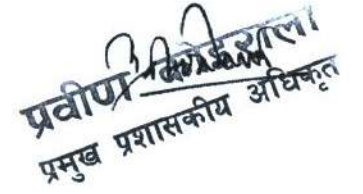 प्रवीण
प्रमुख प्रशासकीय अधिकृत